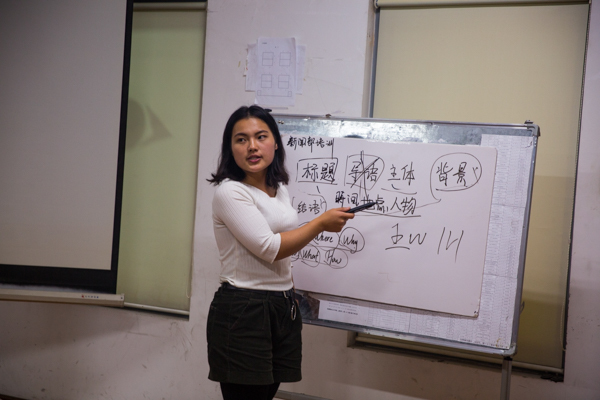 新闻部培训
标题 导语 主体 背景
结语 时间 地点 人物
Where Why
What How
5W 1H